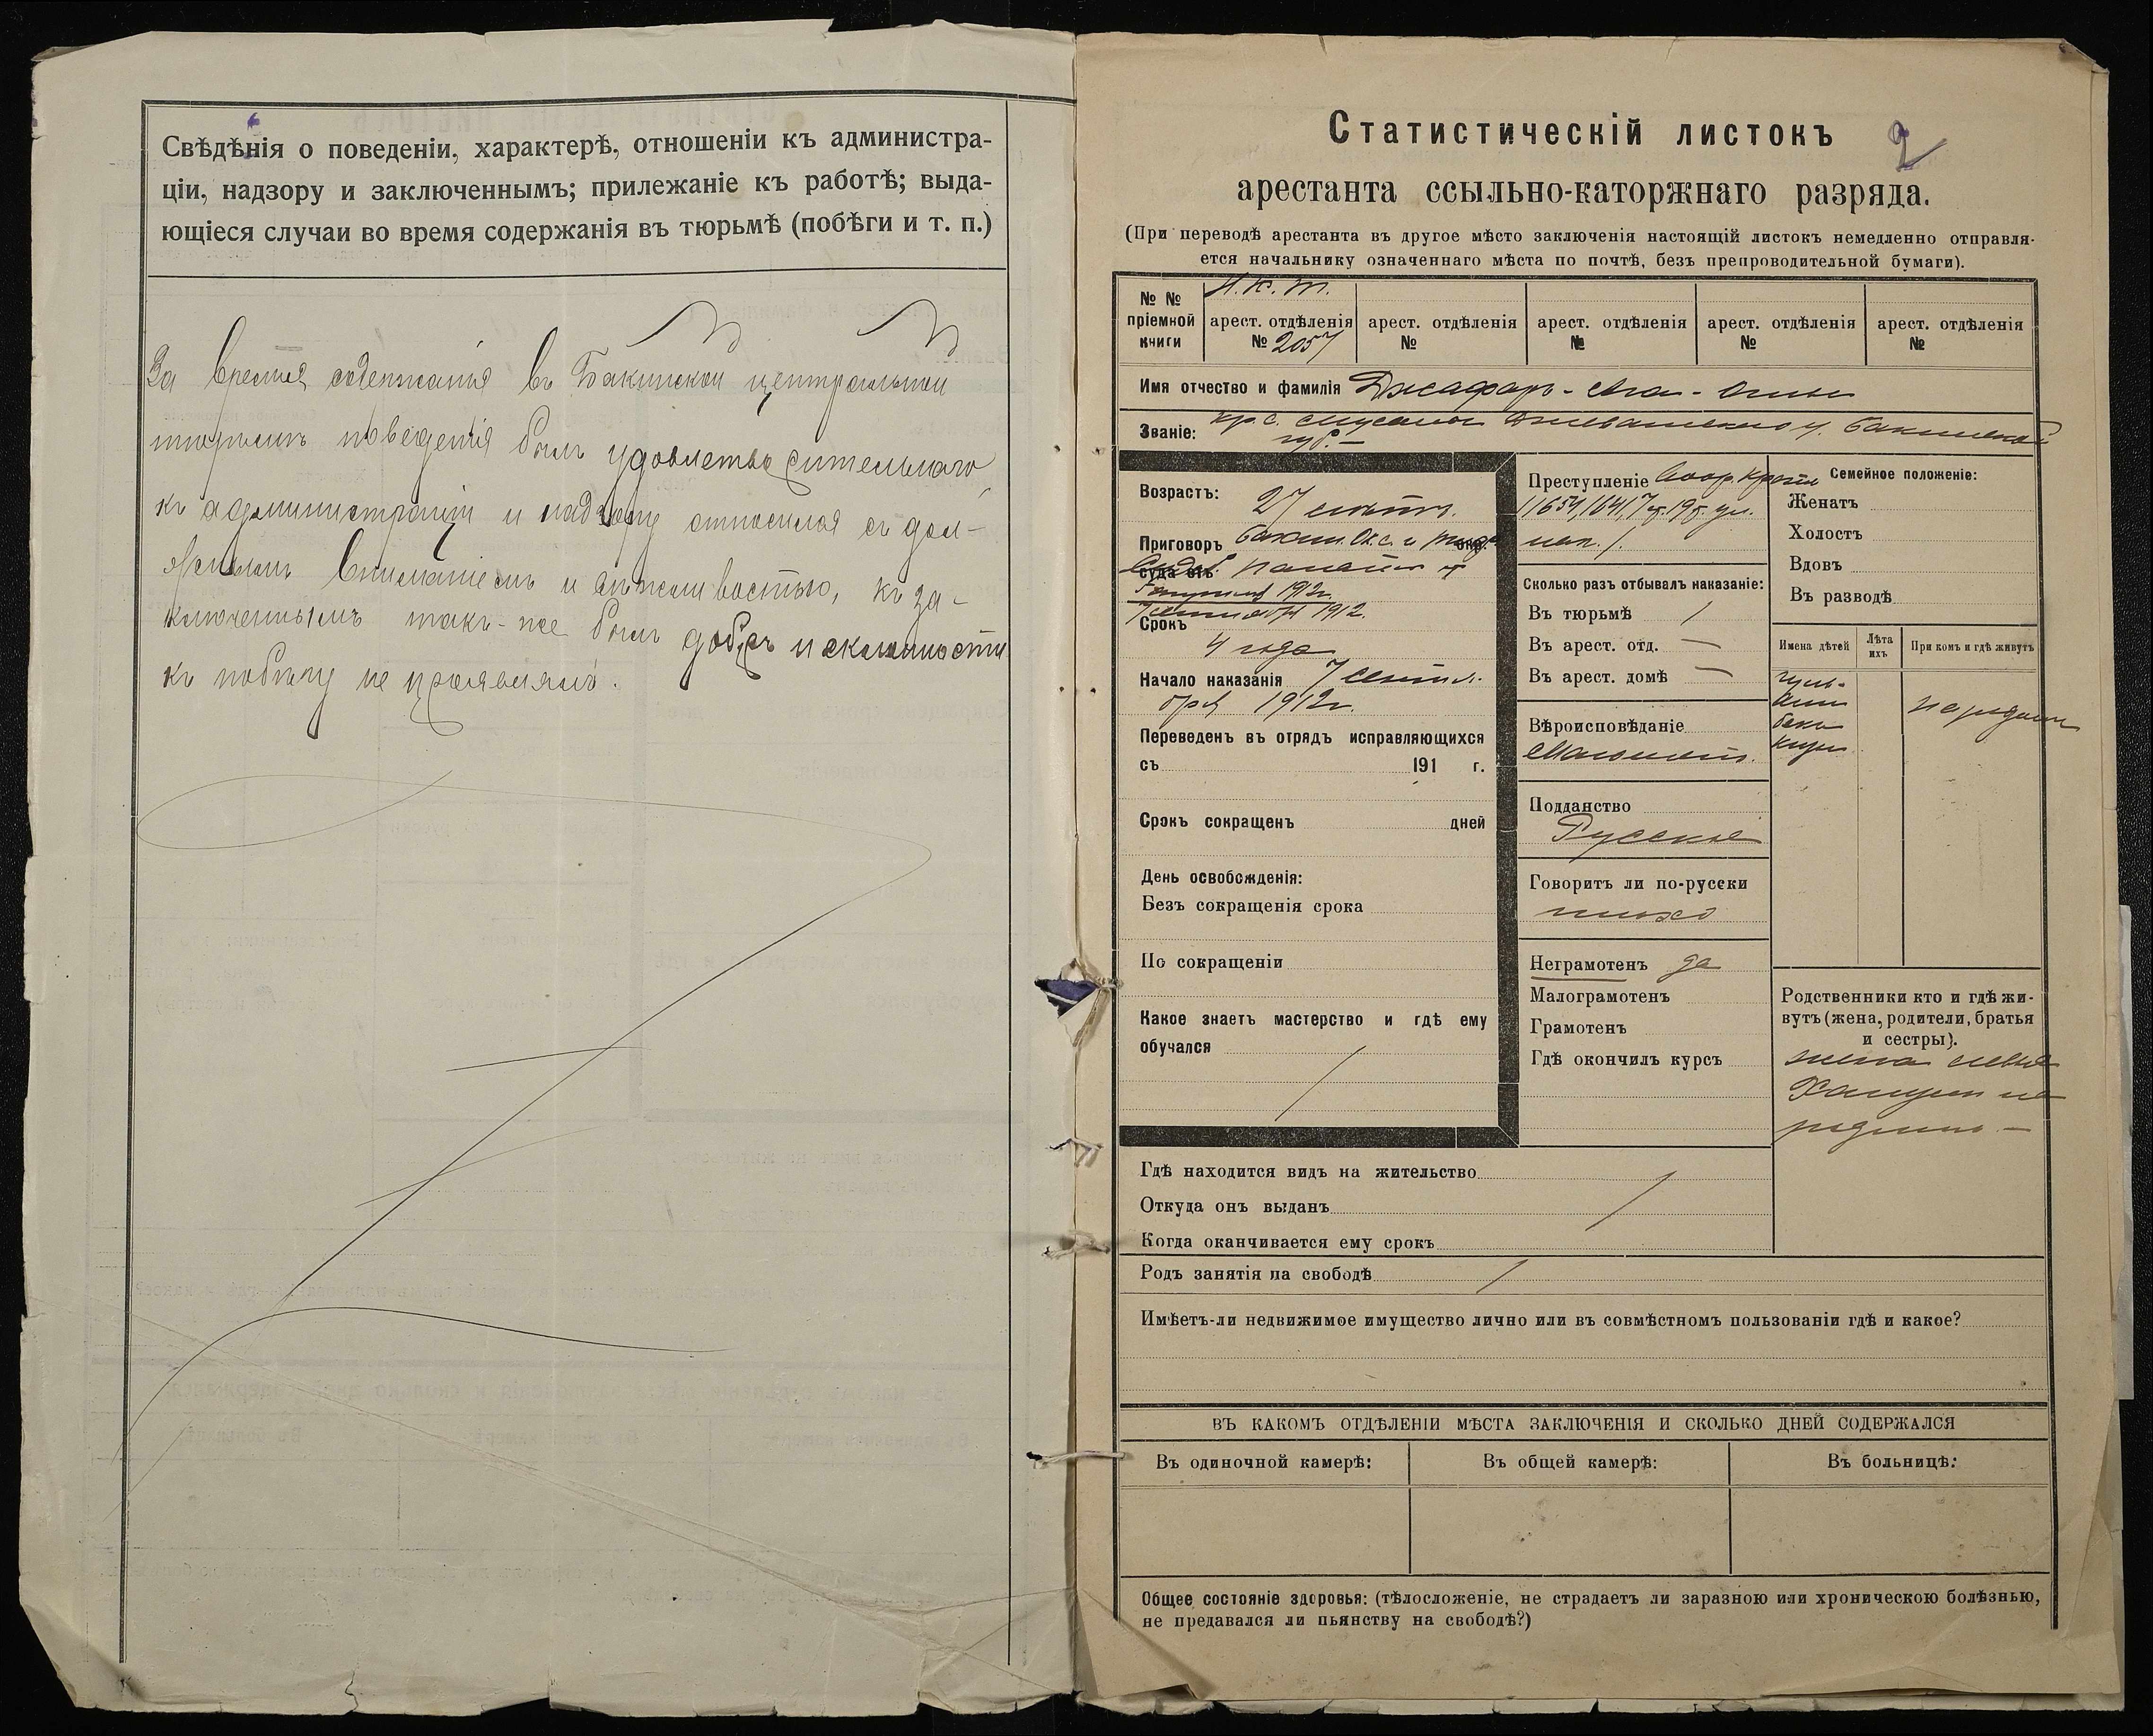 Свѣдѣнія о поведеніи, характерѣ, отношеніи къ администра-
ціи, надзору и заключеннымъ; прилежаніе къ работѣ; выда-
ющіеся случаи во время содержанія въ тюрьмѣ (побѣги и т. п.)
За время содержанія въ Бакинской центральной
тюрьмѣ поведенія былъ удовлетворительнаго
къ администраціи и надзору относился съ дол-
жнымъ вниманіемъ и вѣжливостью, къ за-
ключеннымъ такъ-же былъ добръ и склонности
къ побѣгу не проявлялъ.
2
Статистическій листокъ
арестанта ссыльно-каторжнаго разряда.
(При переводѣ арестанта въ другое мѣсто заключенія настоящій листокъ немедленно отправля-
ется начальнику означеннаго мѣста по почтѣ, безъ препроводительной бумаги).
№ №
пріемной
книги
арест. отдѣленія
№ 2057
арест. отдѣленія
№
арест. отдѣленія
№
арест. отдѣленія
№
арест. отдѣленія
№
Имя отчество и фамилія Джафаръ-Ага-Оглы
Званіе: кр. с. Бакинской
губ.
Возрастъ:
27 лѣтъ.
Приговоръ Бакин. Ок. с. и
суда отъ
1912 г.
7 сентября 1912.
Срокъ
4 года
Начало наказанія 7 сентя-
бря 1912 г.
Переведенъ въ отрядъ исправляющихся
съ 191 г.
Срокъ сокращенъ дней
День освобожденія:
Безъ сокращенія срока
По сокращеніи
Какое знаетъ мастерство и гдѣ ему
обучался
Преступленіе
нак.
Сколько разъ отбывалъ наказаніе:
Въ тюрьмѣ /
Въ арест. отд. —
Въ арест. домѣ —
Вѣроисповѣданіе
Магомет.
Подданство
Русское
Говоритъ ли по-русски
плохо
Неграмотенъ да
Малограмотенъ
Грамотенъ
Гдѣ окончилъ курсъ
Семейное положеніе:
Женатъ
Холостъ
Вдовъ
Въ разводѣ
Имена дѣтей
Лѣта ихъ
При комъ и гдѣ живутъ
на родинѣ
Родственники кто и гдѣ жи-
вутъ (жена, родители, братья
и сестры).
жена
Ханумъ на
родинѣ. —
Гдѣ находится видъ на жительство
Откуда онъ выданъ
Когда оканчивается ему срокъ
Родъ занятія на свободѣ
Имѣетъ-ли недвижимое имущество лично или въ совмѣстномъ пользованіи гдѣ и какое?
ВЪ КАКОМЪ ОТДѢЛЕНІИ МѢСТА ЗАКЛЮЧЕНІЯ И СКОЛЬКО ДНЕЙ СОДЕРЖАЛСЯ
Въ одиночной камерѣ:
Въ общей камерѣ:
Въ больницѣ:
Общее состояніе здоровья: (тѣлосложеніе, не страдаетъ ли заразною или хроническою болѣзнью,
не предавался ли пьянству на свободѣ?)